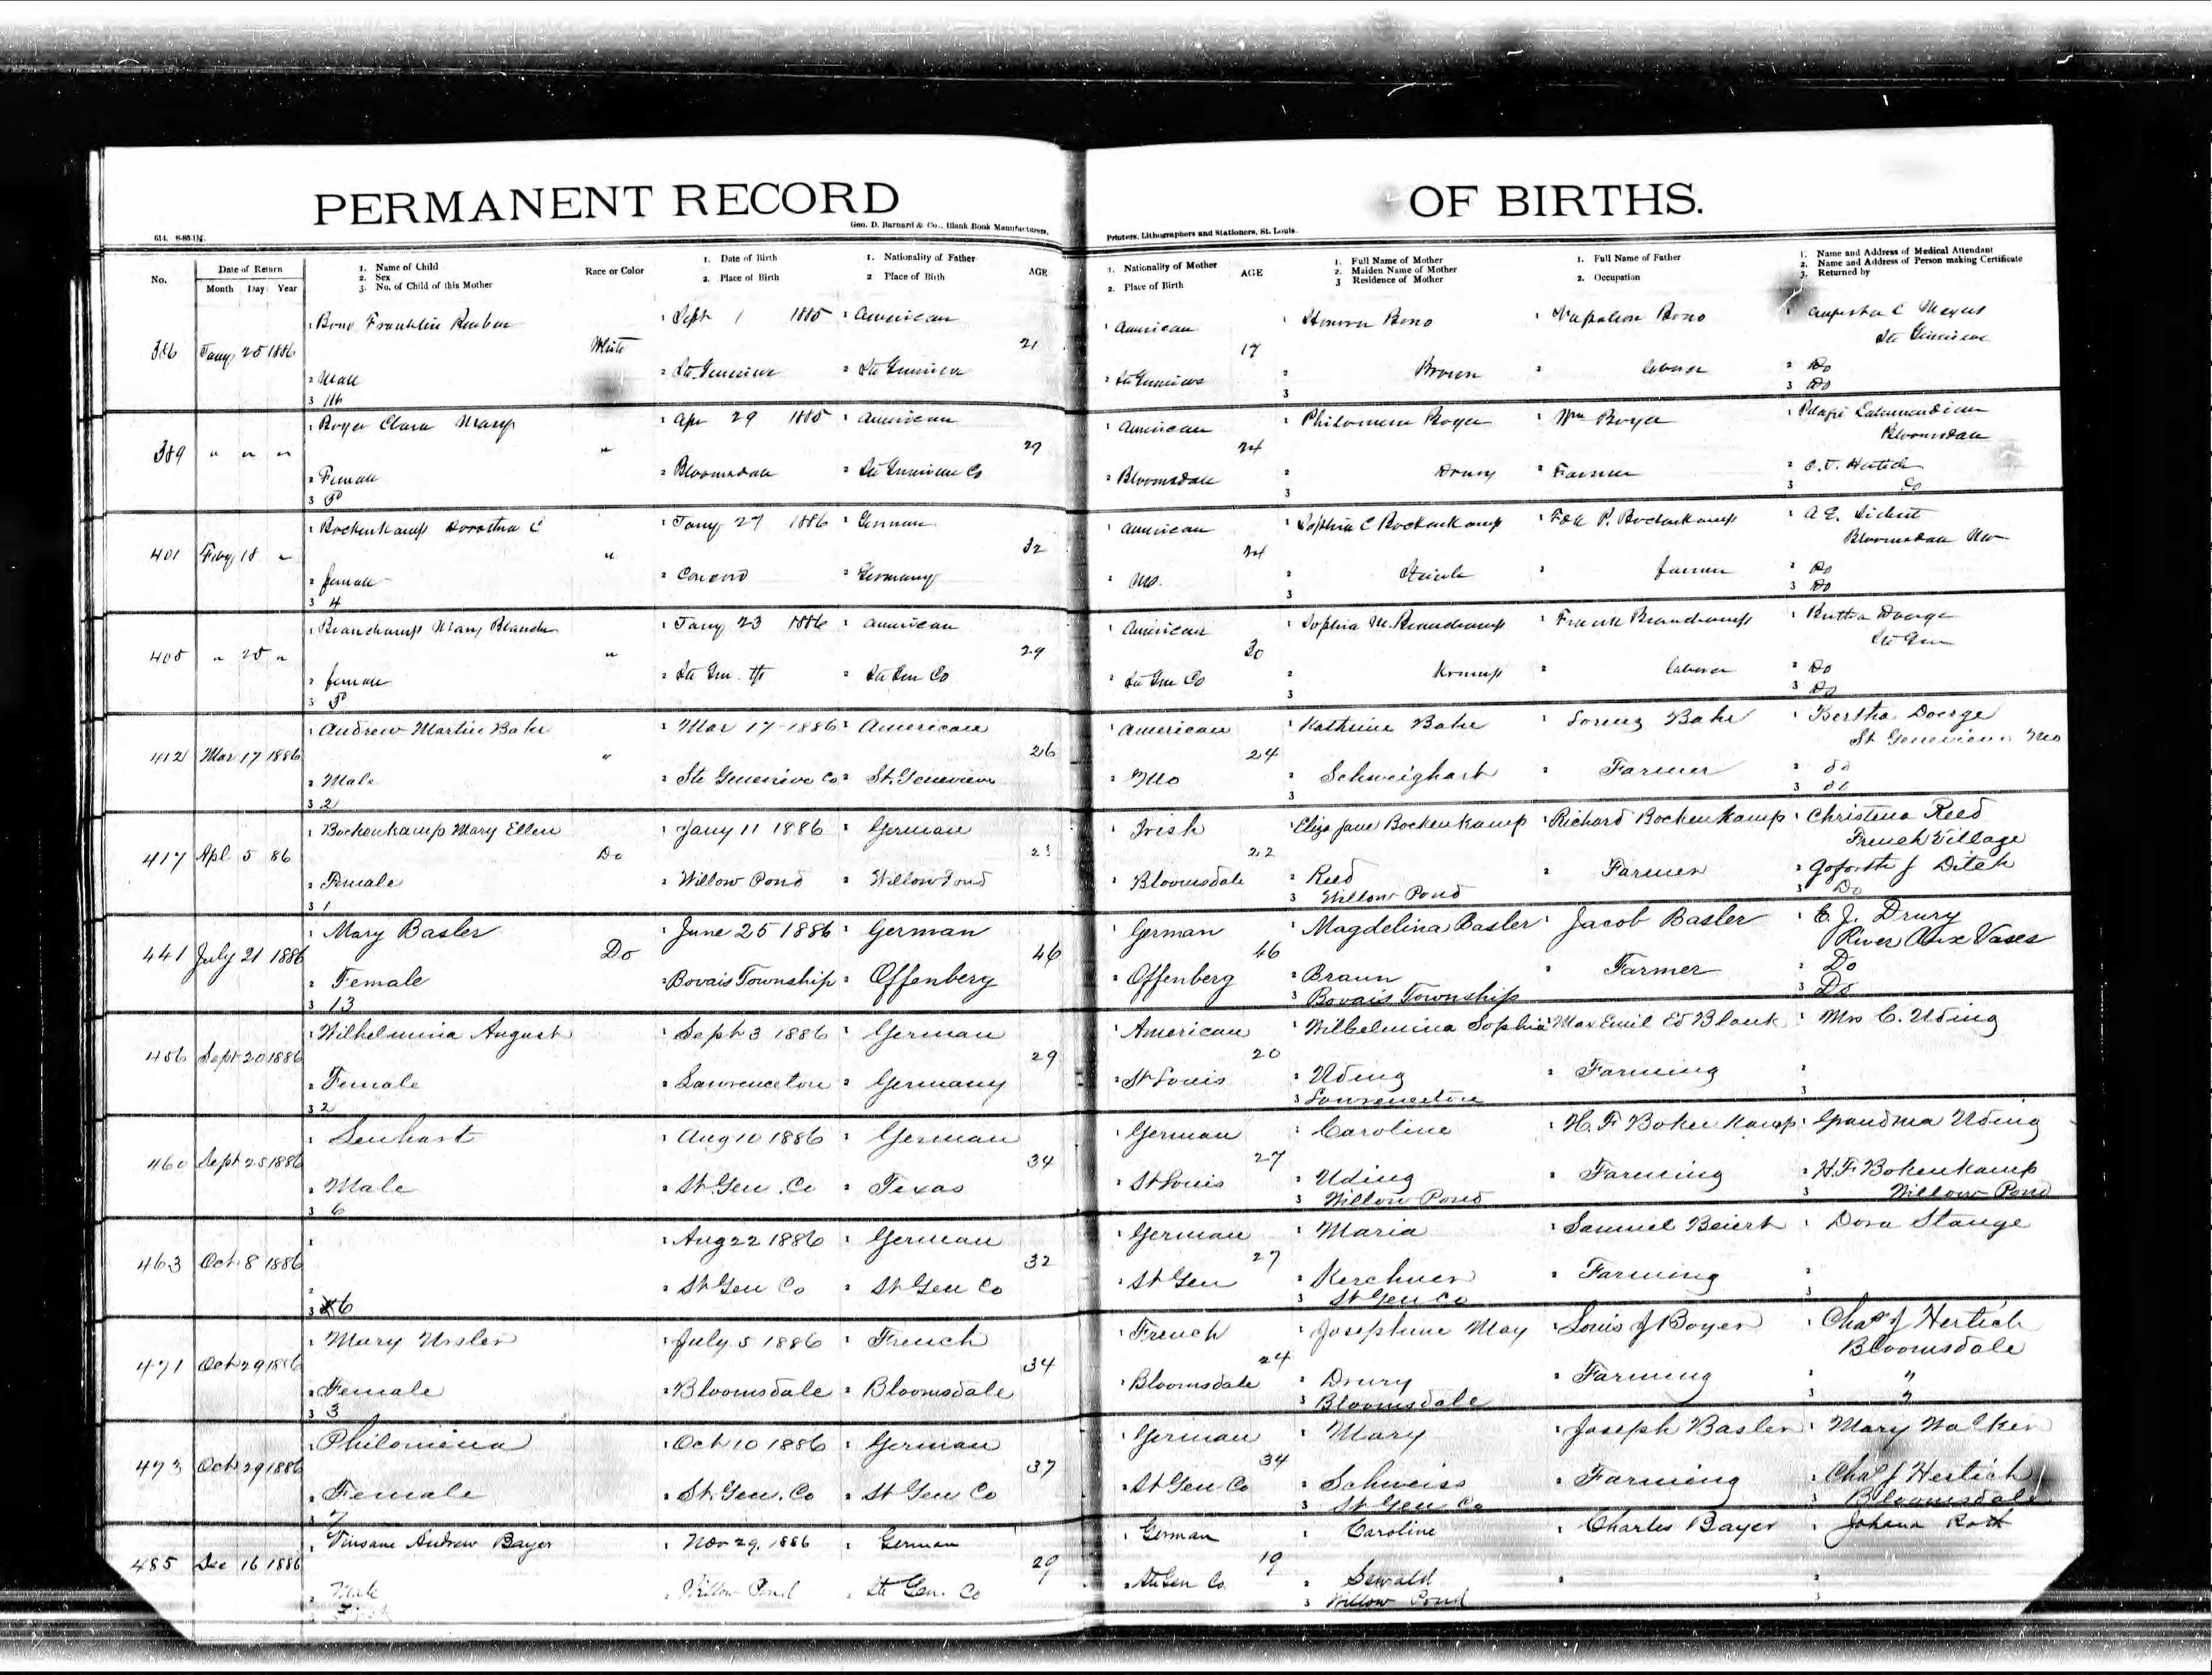 PERMANENT RECORD OF BIRTHS.
614. 8-83-1M.
Geo. D. Barnard & Co., Blank Book Manufacturers,
Printers, Lithographers and Stationers, St. Louis.
No. Date of Return Month Day Year
1. Name of Child
2. Sex
3. No. of Child of this Mother
Race or Color
1. Date of Birth
2. Place of Birth
1. Nationality of Father
2 Place of Birth
AGE
1. Nationality of Mother
2. Place of Birth
AGE
1. Full Name of Mother
2. Maiden Name of Mother
3 Residence of Mother
1. Full Name of Father
2. Occupation
1. Name and Address of Medical Attendant
2. Name and Address of Person making Certificate
3. Returned by
1 Bono Franklin Reuben 1 Sept 1 1885 1 American 1 American 1 Bono 1 Napoleon Bono 1 Augusta C Meyers
Ste Genevieve
386 Jany 25 1886 White 21 17
2 Male 2 Ste. Genevieve 2 Ste Genevieve 2 Ste Genevieve 2 Brown 2 laborer 2 Do
3 3 3 Do
1 Boyer Clara Mary 1 Apr 29 1885 1 American 1 American 1 Philomene Boyer 1 Wm Boyer 1
Bloomsdale
389 " " " " 27 24
2 Female 2 Bloomsdale 2 Ste Genevieve Co 2 Bloomsdale 2 Drury 2 Farmer 2 C. J. Hertich
3 3 3 Do
1 Bockenkamp Dorothea C 1 Jany 27 1886 1 German 1 American 1 Sophia C Bockenkamp 1 Fr P. Bockenkamp 1 A E. Sichert
Bloomsdale Mo
401 Feby 18 " " 32 24
2 female 2 Concord 2 Germany 2 Mo. 2 2 farmer 2 Do
3 4 3 3 Do
1 Beauchamp Mary Blanche 1 Jany 23 1886 1 American 1 American 1 Sophia M. Beauchamp 1 Frank Beauchamp 1 Bertha Doerge
Ste Gen
405 " 25 " " 29 30
2 female 2 Ste Gen. 2 Ste Gen Co 2 Ste Gen Co 2 2 laborer 2 Do
3 3 3 Do
1 Andrew Martin Bahr 1 Mar 17 1886 1 American 1 American 1 Kathrine Bahr 1 Lorenz Bahr 1 Bertha Doerge
St Genevieve Mo
412 Mar 17 1886 " 26 24
2 Male 2 Ste Genevieve Co 2 St. Genevieve 2 Mo 2 Schweighart 2 Farmer 2 do
3 2 3 3 do
1 Bockenkamp Mary Ellen 1 Jany 11 1886 1 German 1 Irish 1 Eliza Jane Bockenkamp 1 Richard Bockenkamp 1 Christena Reed
French Village
417 Apl 5 86 Do 22
2 Female 2 Willow Pond 2 Willow Pond 2 Bloomsdale 2 Reed 2 Farmer 2 Goforth J Ditch
3 1 3 Willow Pond 3 Do
1 Mary Basler 1 June 25 1886 1 German 1 German 1 Magdelina Basler 1 Jacob Basler 1 E. J. Drury
River Aux Vases
441 July 21 1886 Do 46 46
2 Female 2 Bovais Township 2 Offenberg 2 Offenberg 2 Braun 2 Farmer 2 Do
3 13 3 Bovais Township 3 Do
1 Wilhelmina August 1 Sept 3 1886 1 German 1 American 1 Wilhelmina Sophia 1 Max Emil Ed Blank 1 Mrs C. Uding
456 Sept 20 1886 29 20
2 Female 2 Lawrenceton 2 Germany 2 St Louis 2 Uding 2 Farming 2
3 2 3 Lawrenceton 3
1 Lenhart 1 Aug 10 1886 1 German 1 German 1 Caroline 1 H. F. Bokenkamp 1 Grandma Uding
460 Sept 25 1886 34 27
2 Male 2 St. Gen. Co 2 Texas 2 St Louis 2 Uding 2 Farming 2 H. F. Bokenkamp
3 6 3 Willow Pond 3 Willow Pond
1 1 Aug 22 1886 1 German 1 German 1 Maria 1 Samuel Beiert 1 Dora Stange
463 Oct 8 1886 32 27
2 2 St Gen Co 2 St Gen Co 2 St Gen 2 Kerchner 2 Farming 2
3 6 3 St Gen Co 3
1 Mary Ursler 1 July 5 1886 1 French 1 French 1 Josephine May 1 Louis J Boyer 1 Chas J Hertich
Bloomsdale
471 Oct 29 1886 34 24
2 Female 2 Bloomsdale 2 Bloomsdale 2 Bloomsdale 2 Drury 2 Farming 2 "
3 3 3 Bloomsdale 3 "
1 Philomena 1 Oct 10 1886 1 German 1 German 1 Mary 1 Joseph Basler 1 Mary Walker
473 Oct 29 1886 37 34
2 Female 2 St. Gen. Co 2 St Gen Co 2 St Gen Co 2 Schweiss 2 Farming 2 Chas J Hertich
3 7 3 St Gen Co 3 Bloomsdale
1 Vinsane Andrew Bayer 1 Nov 29, 1886 1 German 1 German 1 Caroline 1 Charles Bayer 1 Johana Roth
485 Dec 16 1886 29 19
2 Male 2 Willow Pond 2 Ste Gen. Co 2 Ste Gen Co. 2 Sewald 2 2
3 First 3 Willow Pond 3